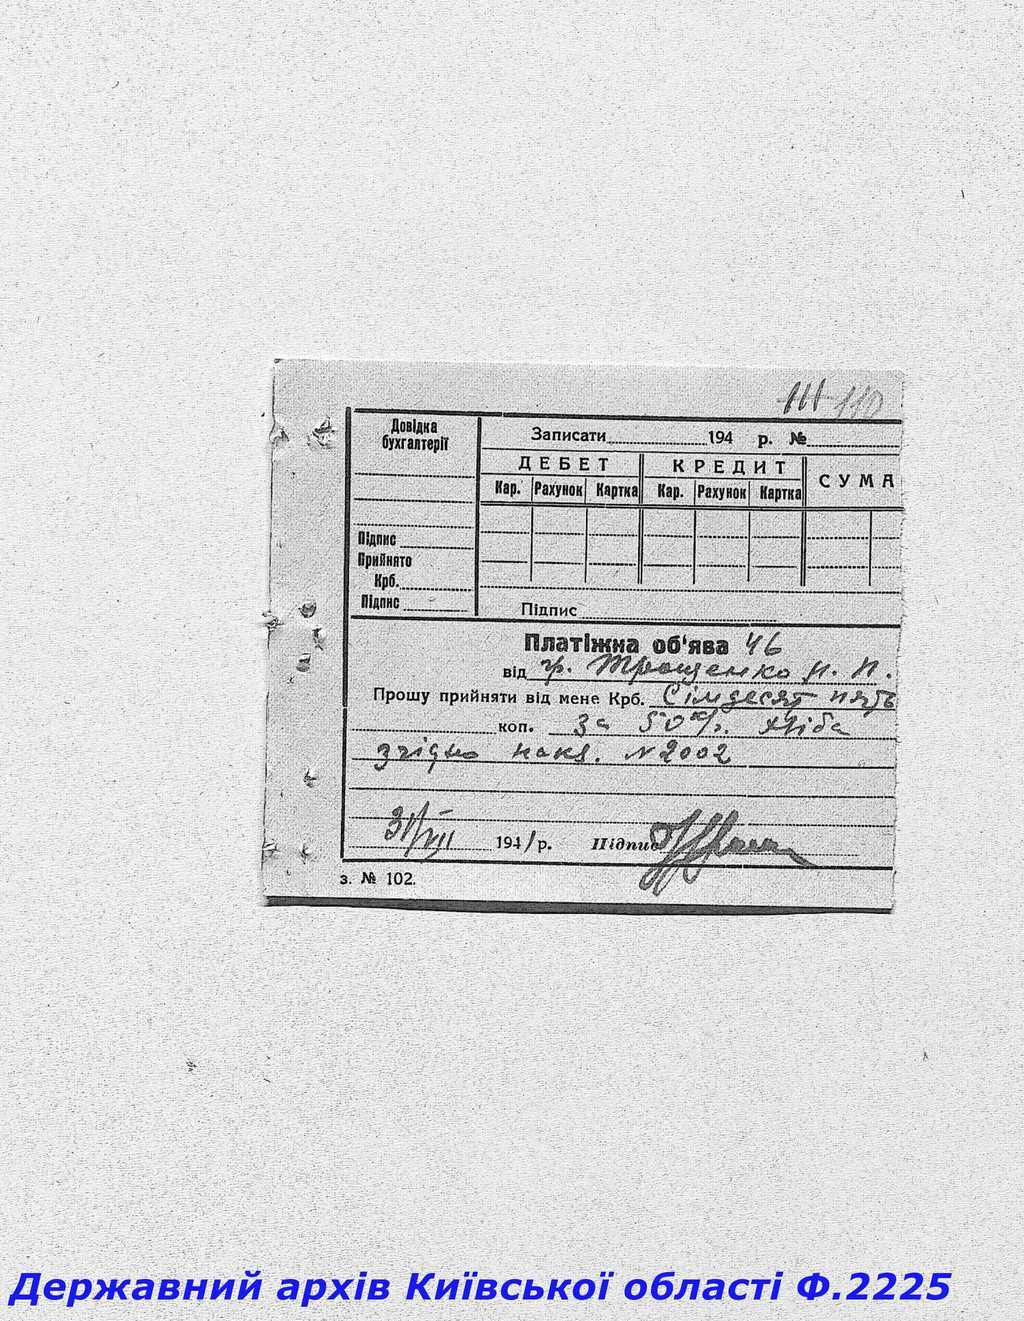 111 110
Довідка бухгалтерії
Записати 194 р. №
ДЕБЕТ КРЕДИТ СУМА
Кар. Рахунок Картка Кар. Рахунок Картка
Підпис
Прийнято
Крб.
Підпис
Підпис
Платіжна об'ява 46
від гр. Трощенко
Прошу прийняти від мене Крб. Сімдесят пять
коп. за 50 кг. хліба
згідно накл. №2002
31/VIII 1941 р. Підпис
з. № 102.
Державний архів Київської області Ф.2225